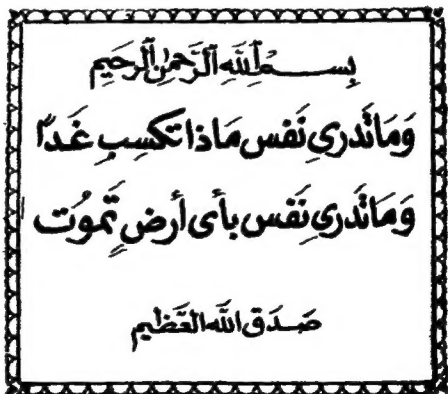 بِسْمِ اللَّهِ الرَّحْمٰنِ الرَّحِيمِ
وَمَا تَدرِى نَفس مَاذا تكسِب غَدًا
وَمَا تَدرِى نَفس بأى أرضٍ تَمُوت
صَدَق اللَّه العَظِيم